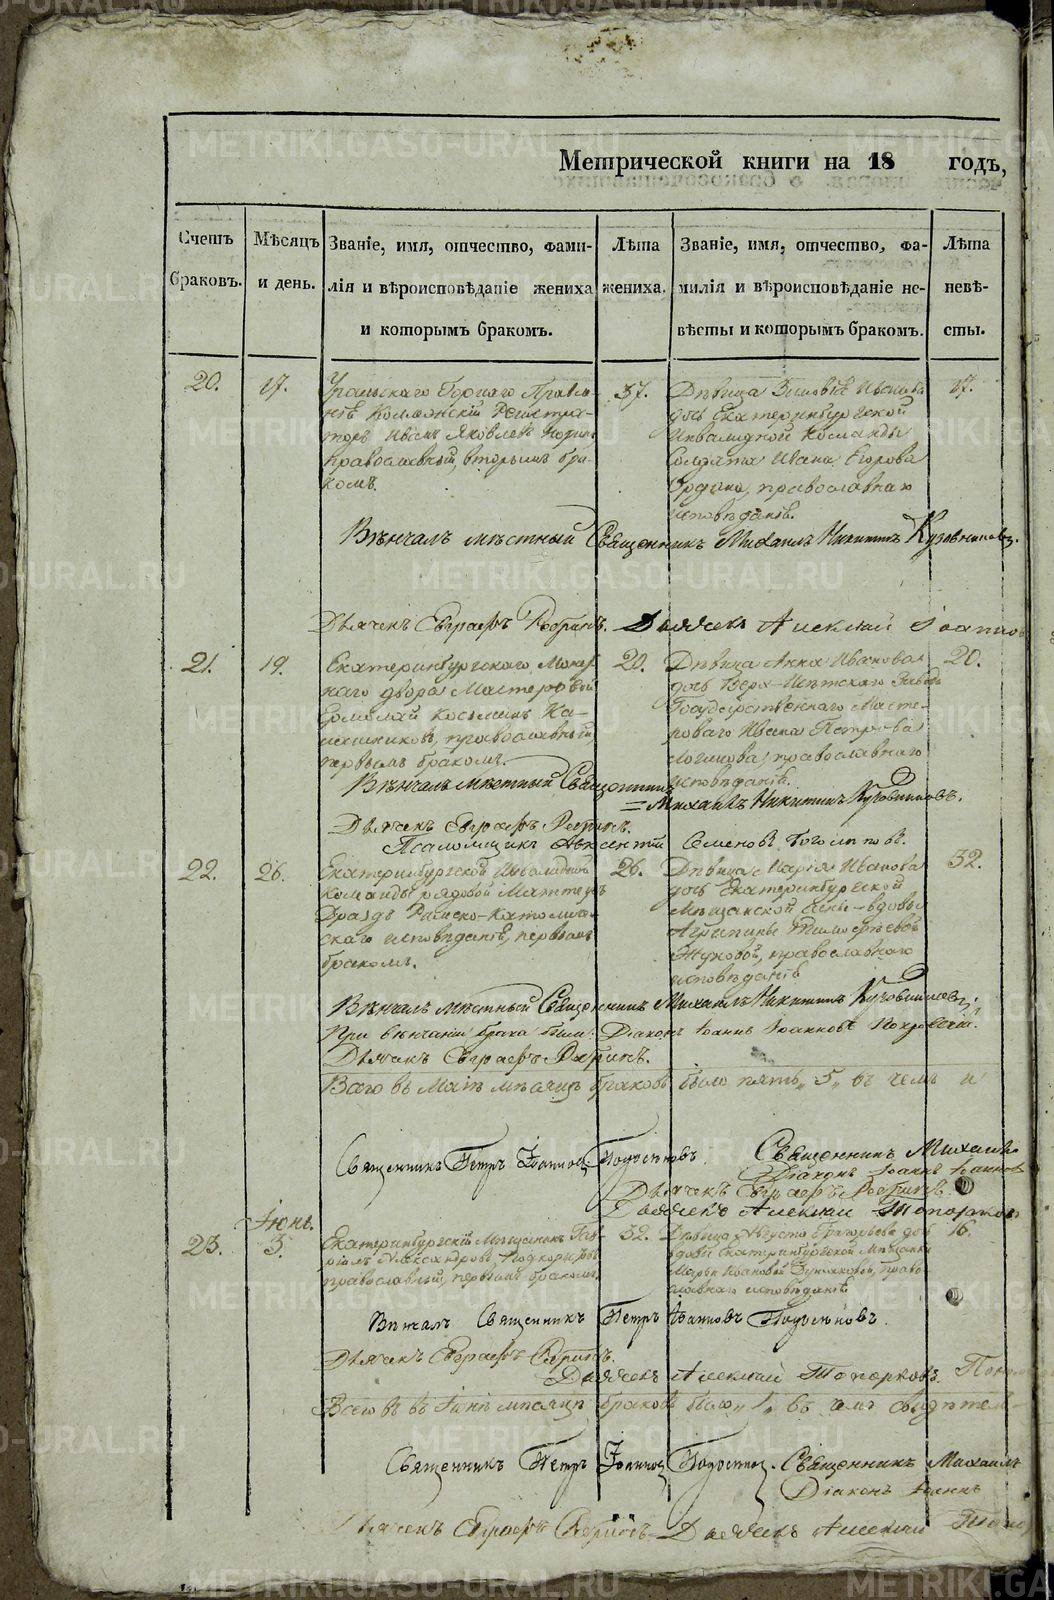 Метрической книги на 18 годъ,
Счетъ браковъ.
Мѣсяцъ и день.
Званіе, имя, отчество, фами-
лія и вѣроисповѣданіе жениха
и которымъ бракомъ.
Лѣта жениха.
Званіе, имя, отчество, фа-
милія и вѣроисповѣданіе не-
вѣсты и которымъ бракомъ.
Лѣта невѣ-
сты.
20.
17.
Уральскаго Горнаго Правле-
нія Коллежскій Регистра-
торъ Иванъ Яковлевъ
православный, вторымъ бра-
комъ.
37.
Дѣвица Зиновія Иванова
дочь Екатеринбургской
Инвалидной Команды
Солдата Ивана Егорова
православнаго
исповѣданія.
17.
Вѣнчалъ мѣстный Священникъ Михаилъ Никитинъ Кузовниковъ.
Дьячекъ Евграфъ Рябинъ. Дьячекъ Алексѣй
21.
19.
Екатеринбургскаго Монет-
наго двора Мастеровой
Ермолай Козьминъ Ка-
менщиковъ, православный,
первымъ бракомъ.
20.
Дѣвица Анна Иванова
дочь Верх-Исетскаго Завода
Государственнаго Масте-
роваго Ивана Петрова
Логинова, православнаго
исповѣданія.
20.
Вѣнчалъ мѣстный Священникъ
=Михаилъ Никитинъ Кузовниковъ.
Дьячекъ Евграфъ Рябинъ.
Псаломщикъ Авксентій Семеновъ Боголеповъ.
22.
26.
Екатеринбургской Инвалидной
Команды рядовой Маттеушъ
Дроздъ Римско-Католиче-
скаго исповѣданія, первымъ
бракомъ.
26.
Дѣвица Марія Иванова
дочь Екатеринбургской
Мѣщанской вдовы
Агрипины Тимофѣевой
Жуковой, православнаго
исповѣданія
32.
Вѣнчалъ мѣстный Священникъ Михаилъ Никитинъ Кузовниковъ.
При вѣнчаніи брака были: Діаконъ Іоаннъ Іоанновъ Покровскій.
Дьячекъ Евграфъ Рябинъ.
Всего въ Маіѣ мѣсяцѣ браковъ было пять „5„ въ чемъ и
Священникъ Петръ Іоанновъ Подосеновъ. Священникъ Михаилъ
Діаконъ Іоаннъ Іоанновъ
Дьячекъ Евграфъ Рябинъ
Дьячекъ Алексѣй Топорковъ
Іюнь.
23.
3.
Екатеринбургскій Мѣщанинъ Гав-
ріилъ Александровъ Подкорытовъ
православный, первымъ бракомъ.
32.
Дѣвица Августа Григорьева дочь
вдовы Екатеринбургской Мѣщанки
Марьи Ивановой, право-
славнаго исповѣданія
16.
Вѣнчалъ Священникъ Петръ Іоанновъ Подосеновъ.
Дьячекъ Евграфъ Рябинъ.
Дьячекъ Алексѣй Топорковъ.
Всего въ Іюнѣ мѣсяцѣ браковъ было „1„ въ чемъ свидѣтель-
Священникъ Петръ Іоанновъ Подосеновъ. Священникъ Михаилъ
Діаконъ Іоаннъ
Дьячекъ Евграфъ Рябинъ Дьячекъ Алексѣй
METRIKI.GASO-URAL.RU